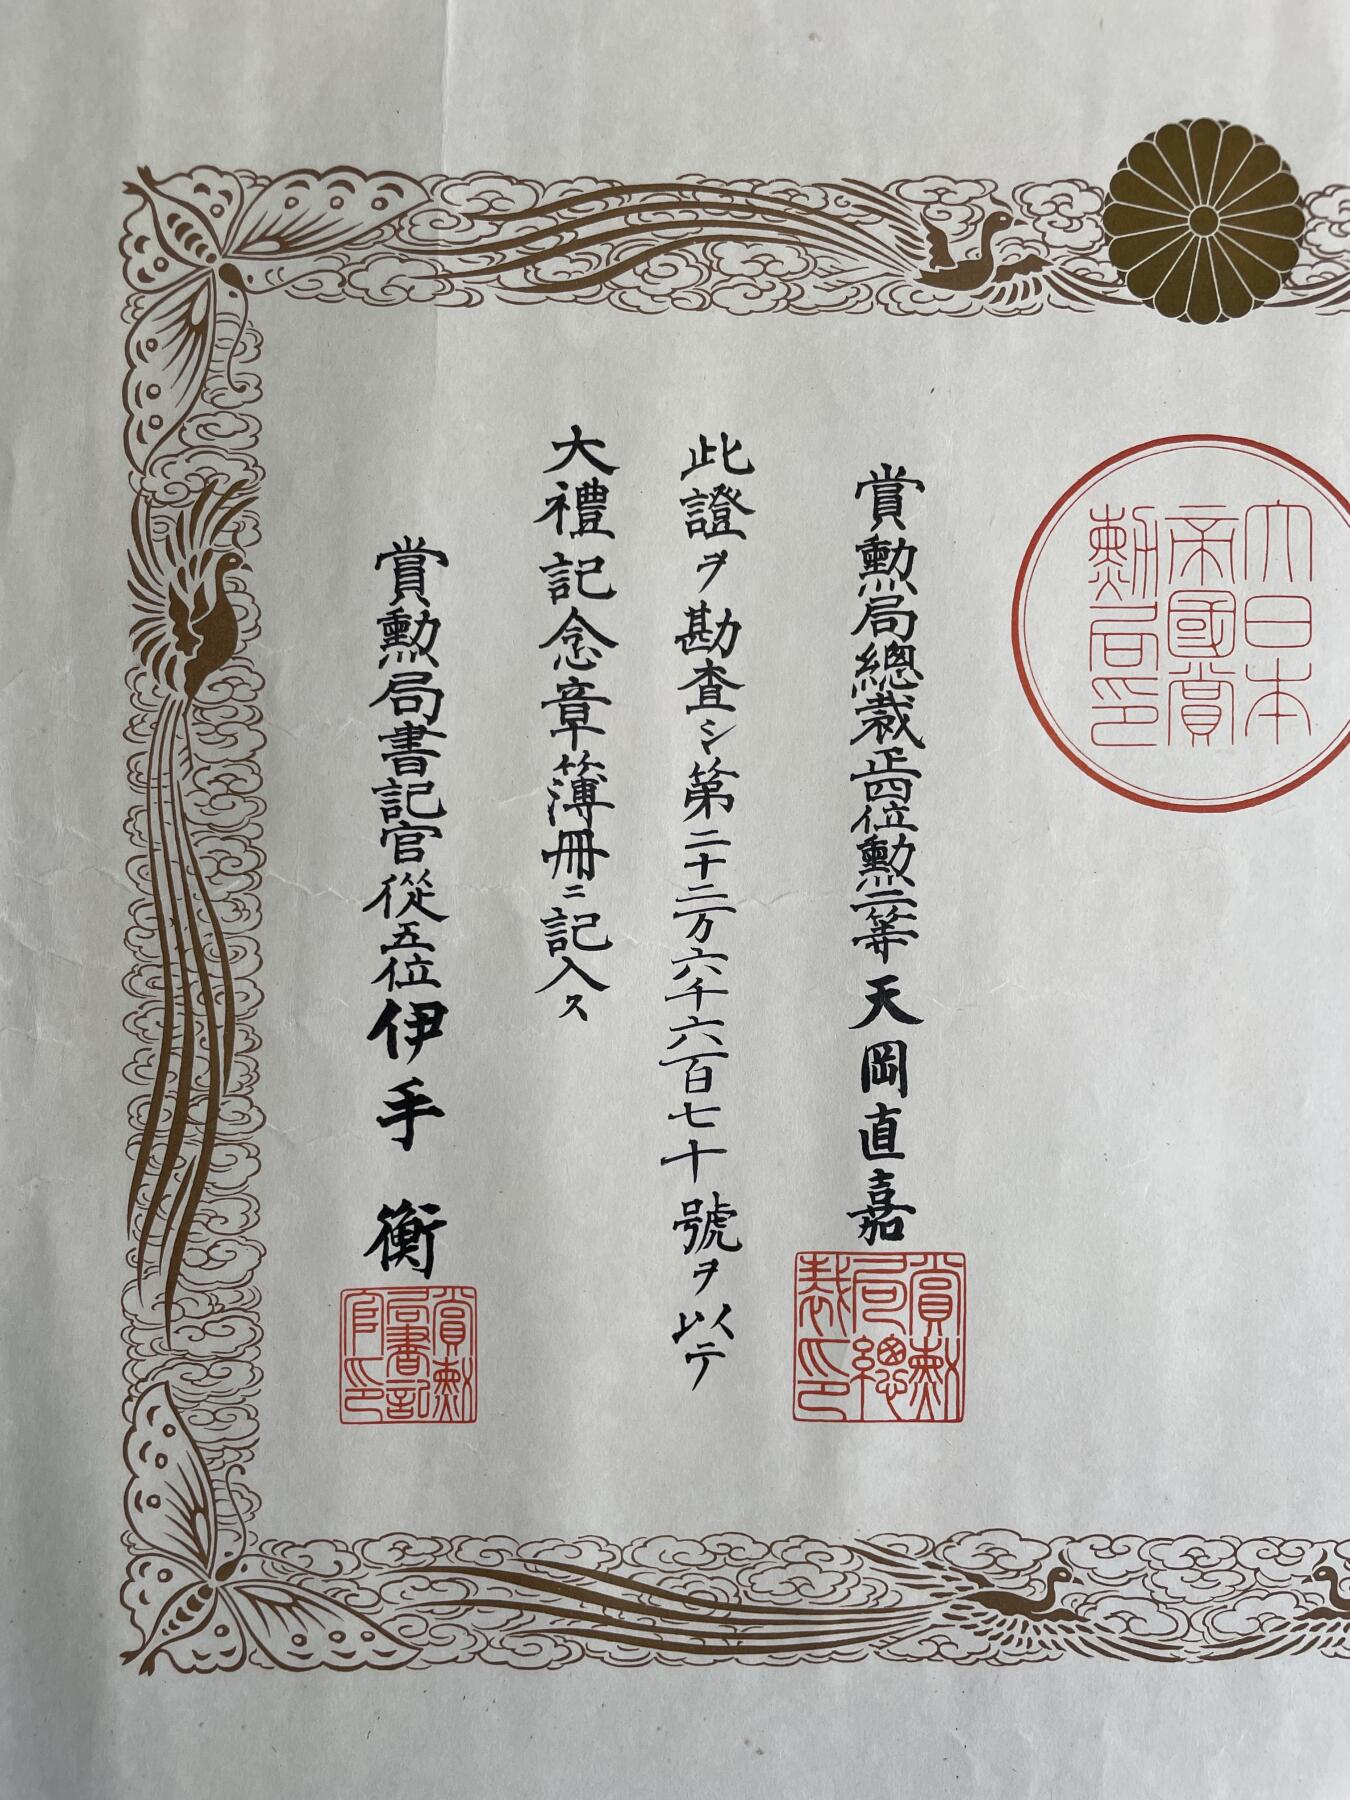 大日本
帝國賞
勲局印
賞勲局總裁正四位勲二等天岡直嘉
賞勲
局總
裁印
此證ヲ勘査シ第二十二万六千六百七十號ヲ以テ
大禮記念章簿冊ニ記入ス
賞勲局書記官從五位伊手衡
賞勲
局書記
官印